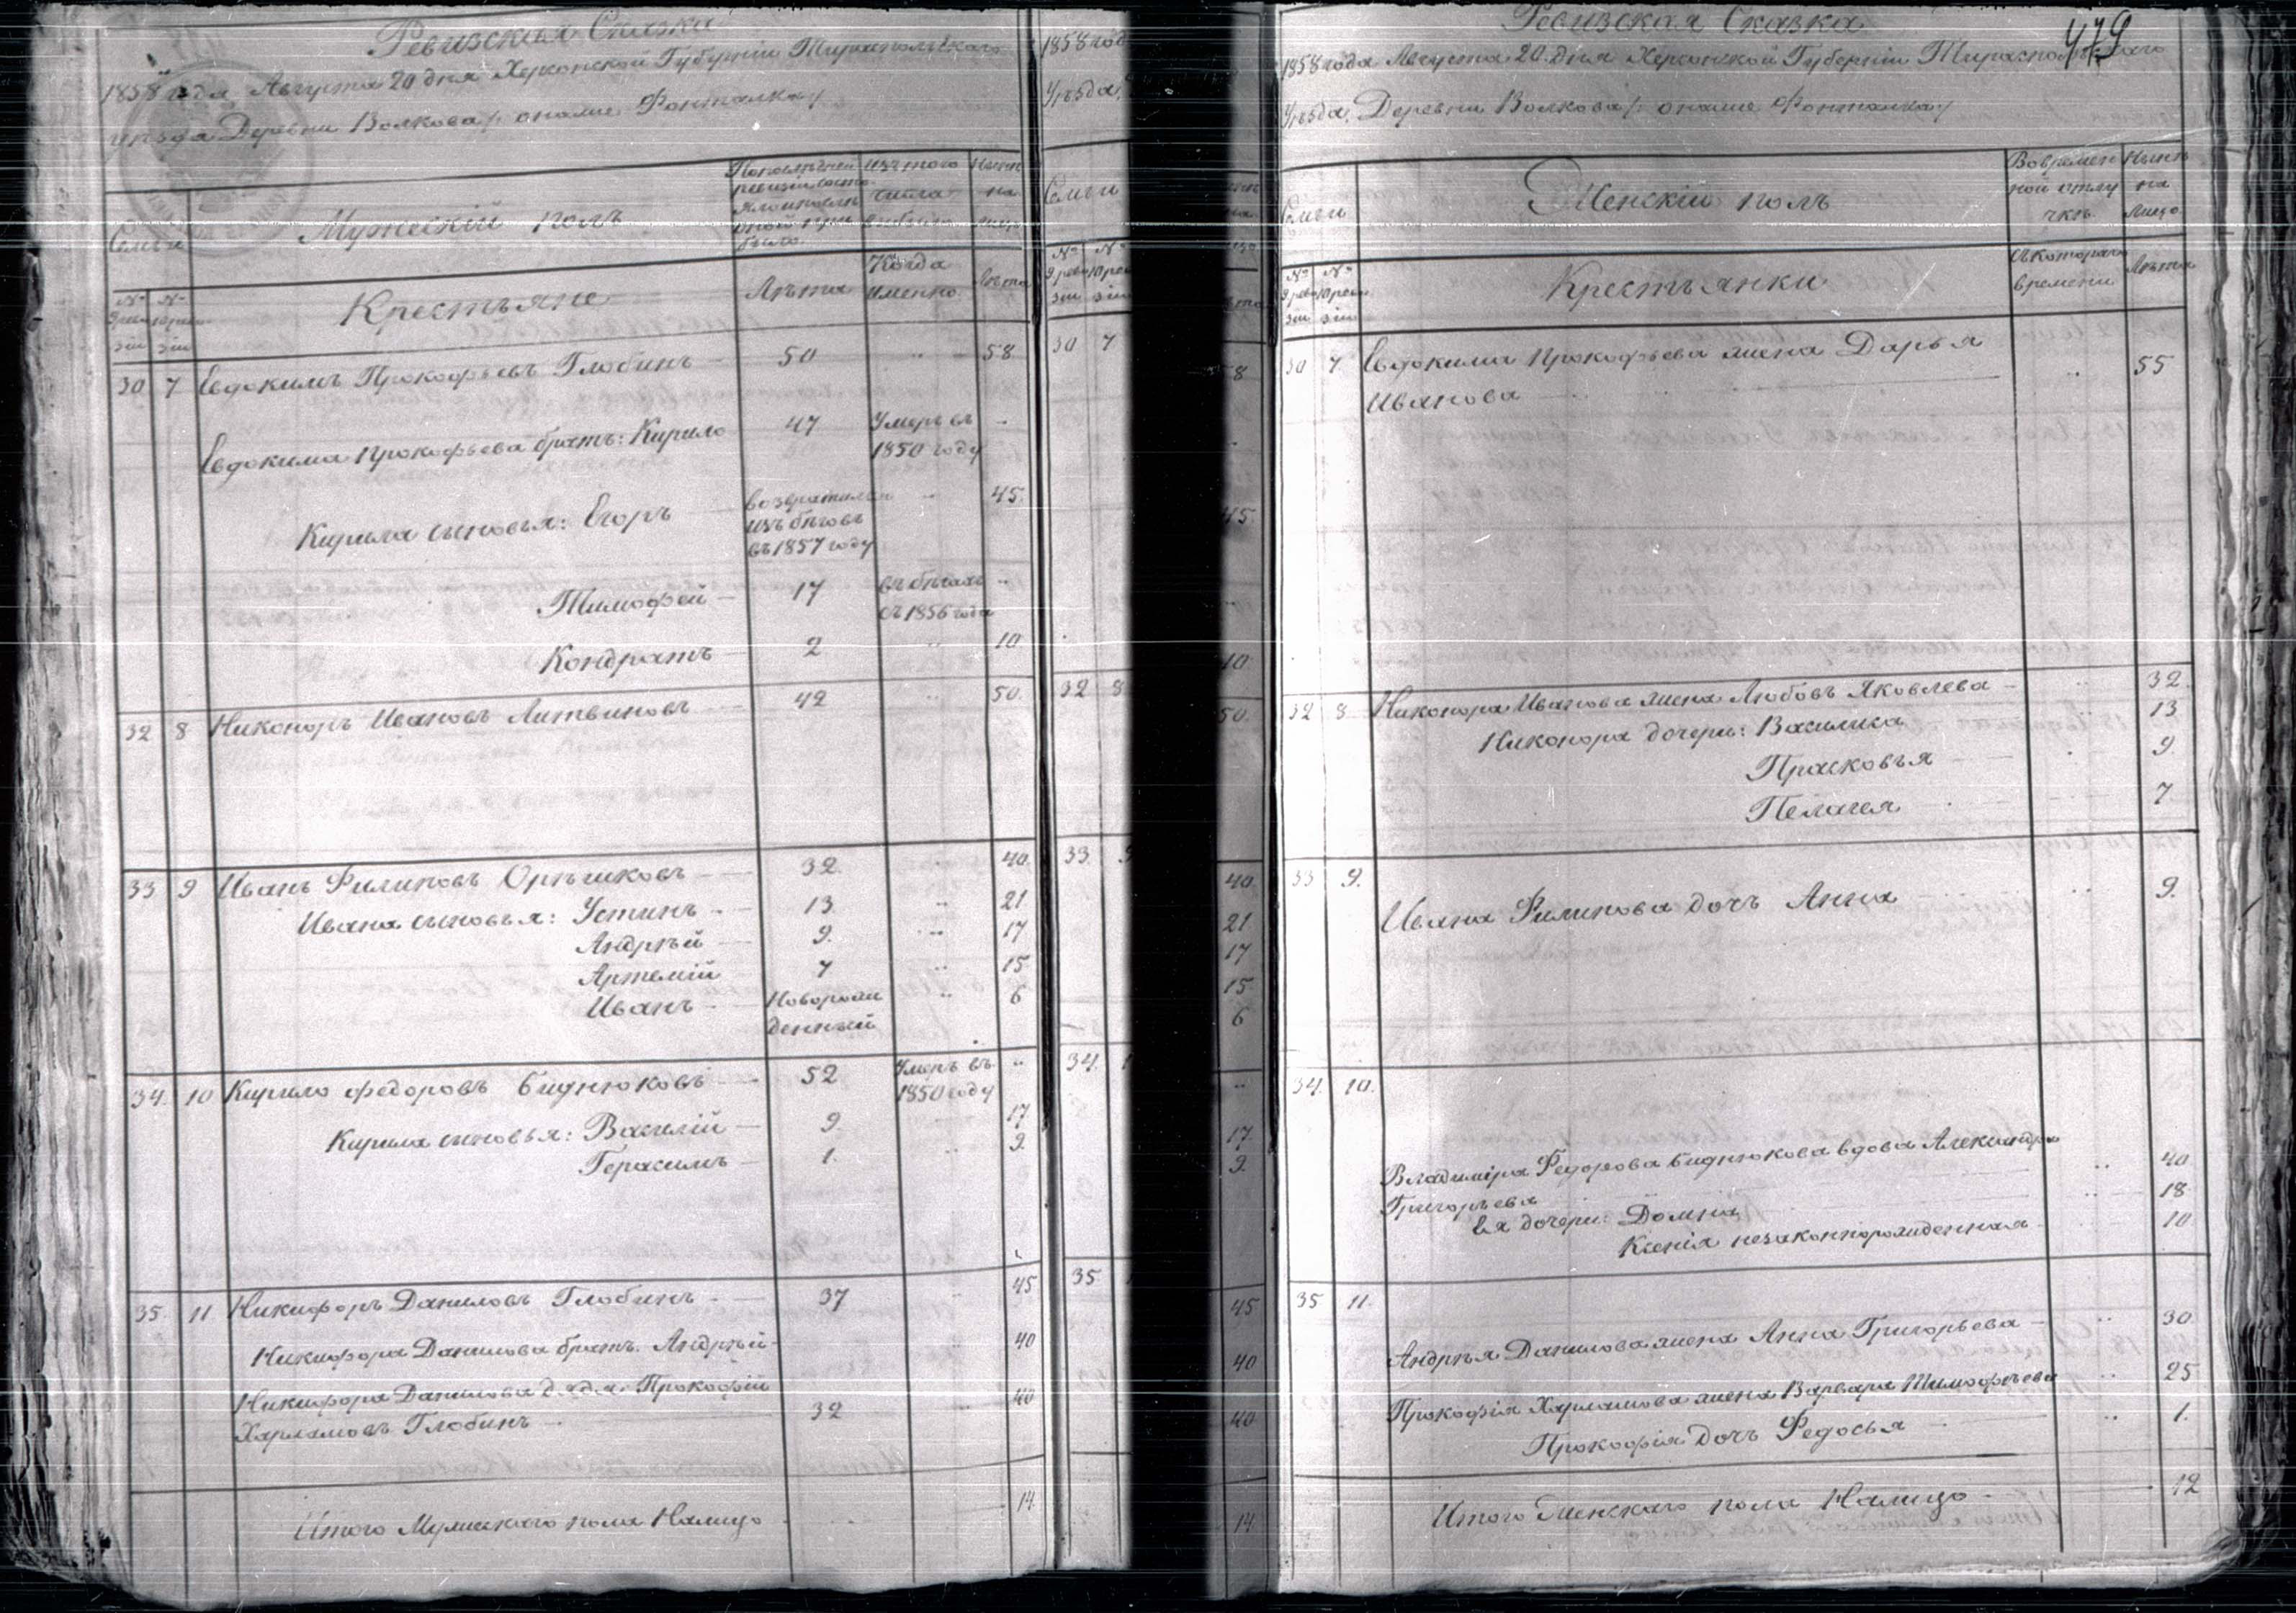 Ревизская Сказка
1858 года Августа 20 дня Херсонской Губерніи Тираспольскаго
уѣзда Деревни Волкова /: онаже Фонталка :/
Семьи
Мужескій полъ
По последней ревизіи состояло и после оной прибыло
Изъ того числа выбыло
Нынѣ на лицо
№ 9 ревизіи
№ 10 ревизіи
Крестьяне
Лѣта
Когда именно
Лѣта
30 7 Евдокимъ Прокофьевъ Глобинъ 50 " 58
Евдокима Прокофьева братъ: Кирило 47 Умеръ въ "
1850 году
Кирила сыновья: Егоръ возвратился " 45.
изъ бѣговъ
въ 1857 году
Тимофей 17 въ бѣгахъ "
съ 1856 года
Кондратъ 2 " 10
32 8 Никоноръ Ивановъ Литвиновъ 42 " 50.
33 9 Иванъ Филиповъ Орѣшковъ 32. " 40.
Ивана сыновья: Устинъ 13 " 21
Андрѣй 9. " 17
Артемій 7 " 15
Иванъ Новорож " 6
денный
34. 10 Кирило Федоровъ Биднюковъ 52 Умеръ въ "
1850 году
Кирила сыновья: Василій 9. " 17.
Герасимъ 1. " 9.
35. 11 Никифоръ Даниловъ Глобинъ 37 " 45
Никифора Данилова братъ. Андрѣй " 40
Никифора Данилова дядя. Прокофій
Харламовъ Глобинъ 32 " 40
Итого Мужескаго пола Налицо 14.
1858 год
Уѣзда,
Семьи
30 7
32 8
33. 9
34. 1
35
58
45.
10
50.
40
21
17
15
6
17.
9.
45
40
40
14
479
Ревизская Сказка
1858 года Августа 20. дня Херсонской Губерніи Тираспольскаго
Уѣзда, Деревни Волкова /: онаже Фонталка :/
Семьи
Женскій полъ
Во времен
ной отлу
чкѣ.
Нынѣ
на
Лицо.
№ 9 ревизіи
№ 10 ревизіи
Крестьянки
съ котораго
времени
Лѣта
30 7 Евдокима Прокофьева жена Дарья
Иванова " 55
32 8 Никонора Иванова жена Любовь Яковлева " 32.
Никонора дочери: Василиса 13
Прасковья 9.
Пелагея 7.
33 9. Ивана Филипова дочь Анна " 9.
34. 10.
Владиміра Федорова Биднюкова вдова Александра
Григорьева " 40
Ея дочери: Домна " 18
Ксенія незаконнорожденная 10
35 11.
Андрѣя Данилова жена Анна Григорьева " 30
Прокофія Харламова жена Варвара Тимофѣева " 25
Прокофія дочь Федосья " 1.
Итого Женскаго пола Налицо 12